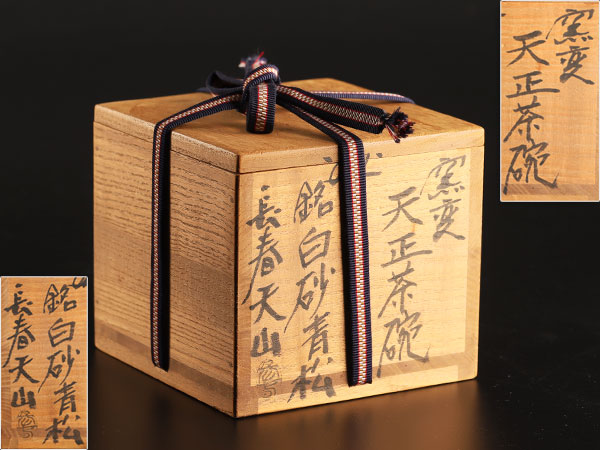 窯変
天正茶碗
銘白砂青松
長春天山
窯変
天正茶碗
銘白砂青松
長春天山